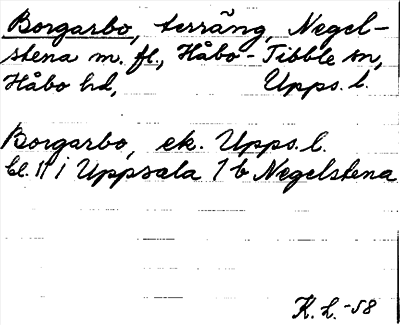 Borgarbo, terräng, Negel-
stena m. fl., Håbo-Tibble sn,
Håbo hd, Upps. l.
Borgarbo, ek. Upps. l.
bl. 11 i Uppsala 1 b Negelstena
K. L. -58